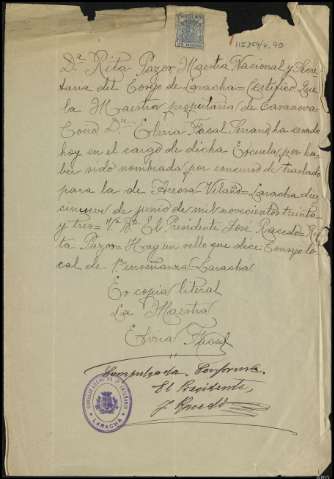 Dª. Rita Pazos Maestra Nacional y Secre
taria del Consejo de Laracha = Certifico: Que
la Maestra propietaria de Caranova
Dª. Elvira ha cesado
hoy en el cargo de dicha Escuela, por ha
ber sido nombrada por concurso de traslado
para la de Laracha die
cinueve de junio de mil novecientos treinta
y tres = Vº. Bº. El Presidente José Ri
ta Pazos = Hay un sello que dice Consejo lo
cal de Enseñanza = Laracha
Es copia literal
La Maestra
Elvira
Compulsada. Conforme.
El Presidente,
LARACHA